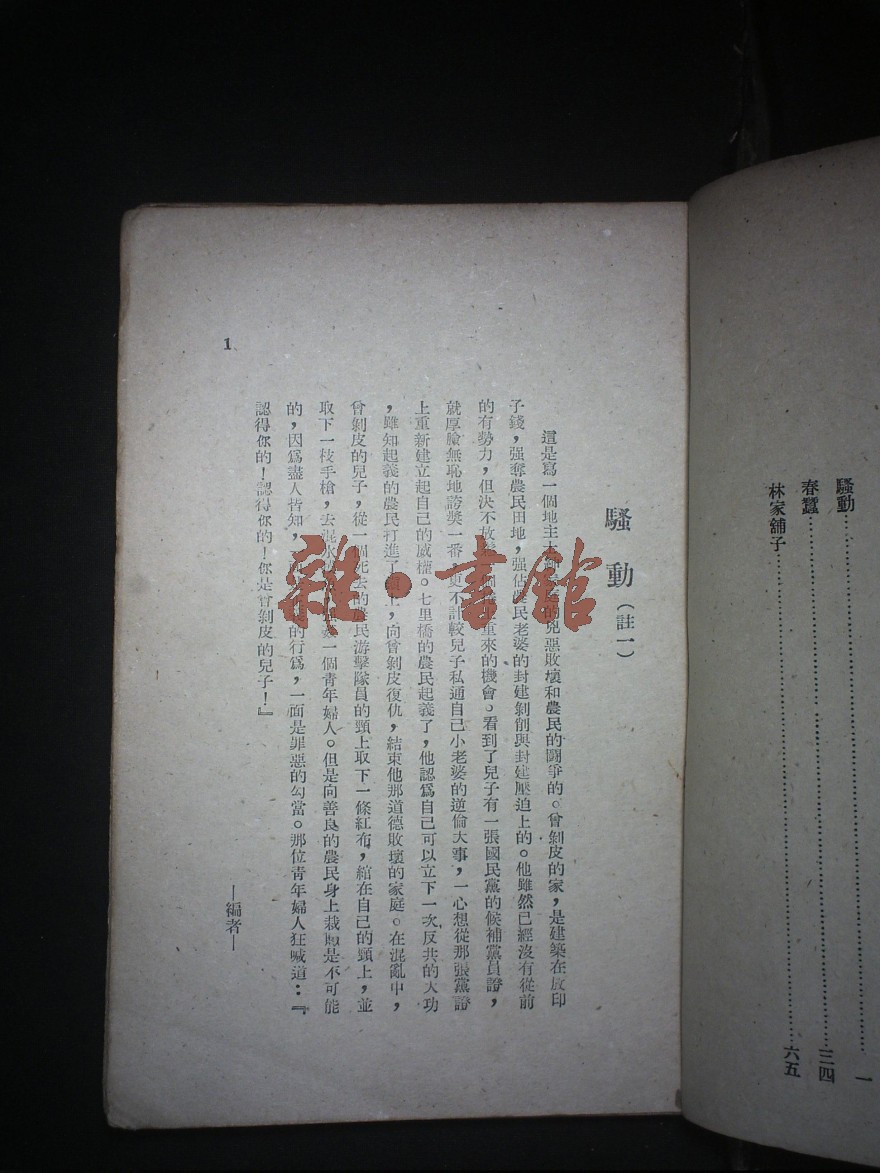 騷動……………一
春蠶……………三四
林家舖子……………六五
騷動（註一）
這是寫一個地主大的兇惡敗壞和農民的鬭爭的。曾剝皮的家，是建築在放印
子錢，强奪農民田地，强佔農民老婆的封建剝削與封建壓迫上的。他雖然已經沒有從前
的有勢力，但決不放個重來的機會。看到了兒子有一張國民黨的候補黨員證，
就厚臉無恥地誇獎一番，更不計較兒子私通自己小老婆的逆倫大事，一心想從那張黨證
上重新建立起自己的威權。七里橋的農民起義了，他認爲自己可以立下一次反共的大功
，雖知起義的農民打進了鎮上，向曾剝皮復仇，結束他那道德敗壞的家庭。在混亂中，
曾剝皮的兒子，從一個死去的農民游擊隊員的頸上取下一條紅布，綰在自己的頸上，並
取下一枝手槍，去混水一個青年婦人。但是向善良的農民身上栽贓是不可能
的，因爲盡人皆知，的行爲，一面是罪惡的勾當。那位青年婦人狂喊道：『
認得你的！認得你的！你是曾剝皮的兒子！』
—編者—
1
雜·書館